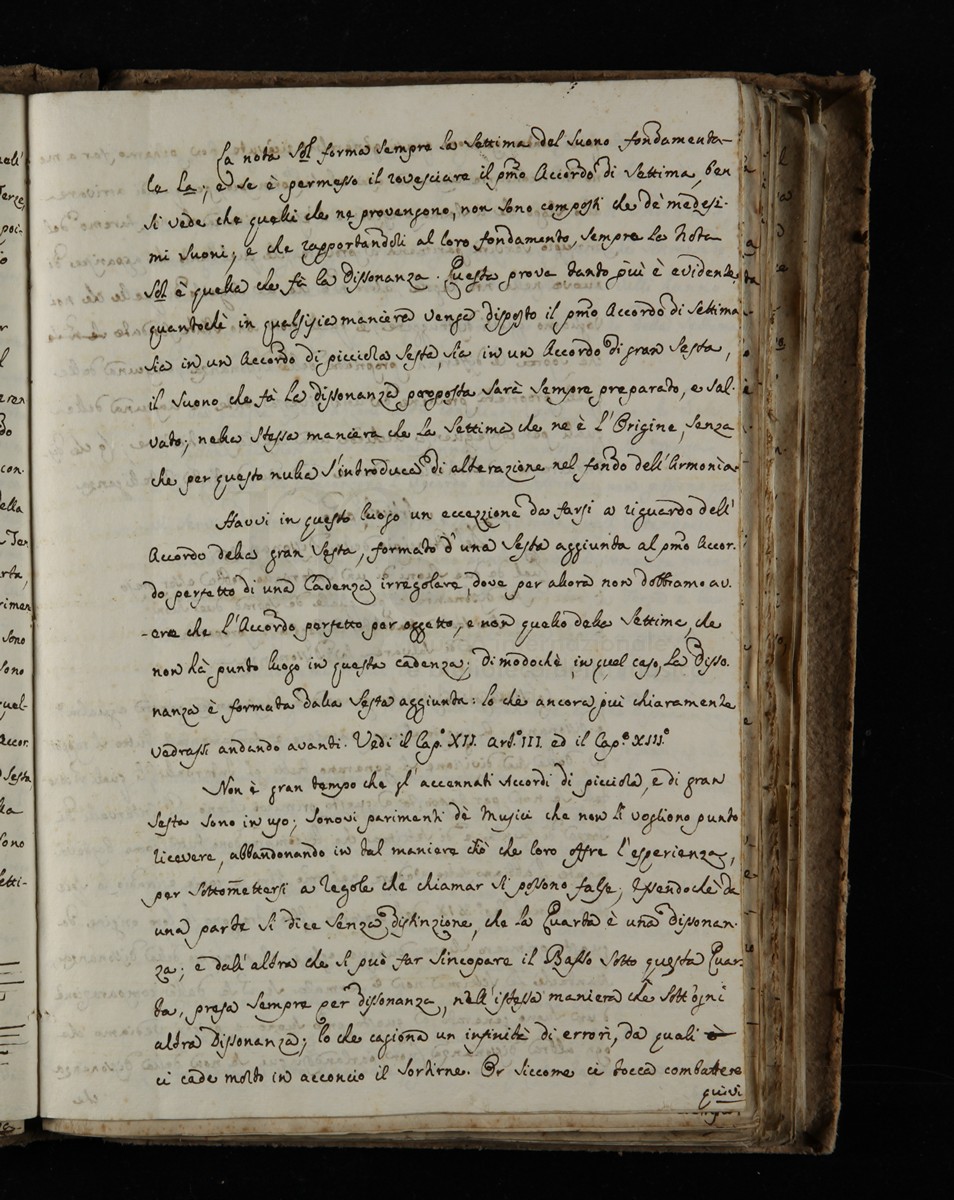 La nota Sol forma sempre la Settima del Suono fondamenta-
le La; e se è permesso il rovesciare il pmo Accordo di Settima, ben
si vede che quelli che ne provengono, non sono composti che de' medesi-
mi Suoni; e che rapportandoli al loro fondamento, sempre la Nota
Sol è quella che fà la Dissonanza. Questa prova tanto più è evidente,
quantochè in qualsisia maniera venga disposto il pmo Accordo di Settima
sia in un Accordo di picciola Sesta, sia in un Accordo di gran Sesta,
il Suono che fà la dissonanza proposta sarà sempre preparato, e sal-
vato; nella stessa maniera che la Settima che ne è l'Origine, senza
che per questo nulla s'introduca di alterazione nel fondo dell'Armonia.
Havvi in questo luogo un eccezzione da farsi a riguardo dell'
Accordo della gran Sesta, formato d'una Sesta aggiunta al pmo Accor-
do perfetto di una Cadenza irregolare, dove per allora non dobbiamo av-
-ere che l'Accordo perfetto per oggetto, e non quello della Settima, che
non hà punto luogo in questa cadenza; dimodochè, in qual caso, la Disso-
nanza è formata dalla Sesta aggiunta: lo che ancora più chiaramente
vedrassi andando avanti. Vedi il Cap.º XII. Art.º III. ed il Cap.º XIII.º
Non è gran tempo che gl'accennati Accordi di picciola, e di gran
Sesta sono in uso; sonovi parimenti dè Musici che non li vogliono punto
ricevere, abbandonando in tal maniera ciò che loro offre l'esperienza,
per sottomettersi a regole che chiamar si possono false; essendochè da
una parte si dice senza distinzione, che la Quarta è una dissonan-
za; e dall'altra che si può far sincopare il Basso sotto questa Quar-
ta, presa sempre per dissonanza, nell'istessa maniera che sott'ogni
altra Dissonanza; lo che cagiona un infinità di errori, da quali
ci cade molto in acconcio il sortirne. Or siccome ci tocca combattere
quivi